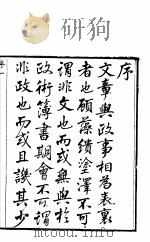 序
文章與政事相為表裏
者也顧藻繢塗澤不可
謂非文也而或無與於
政術簿書期會不可謂
非政也而或且譏其少